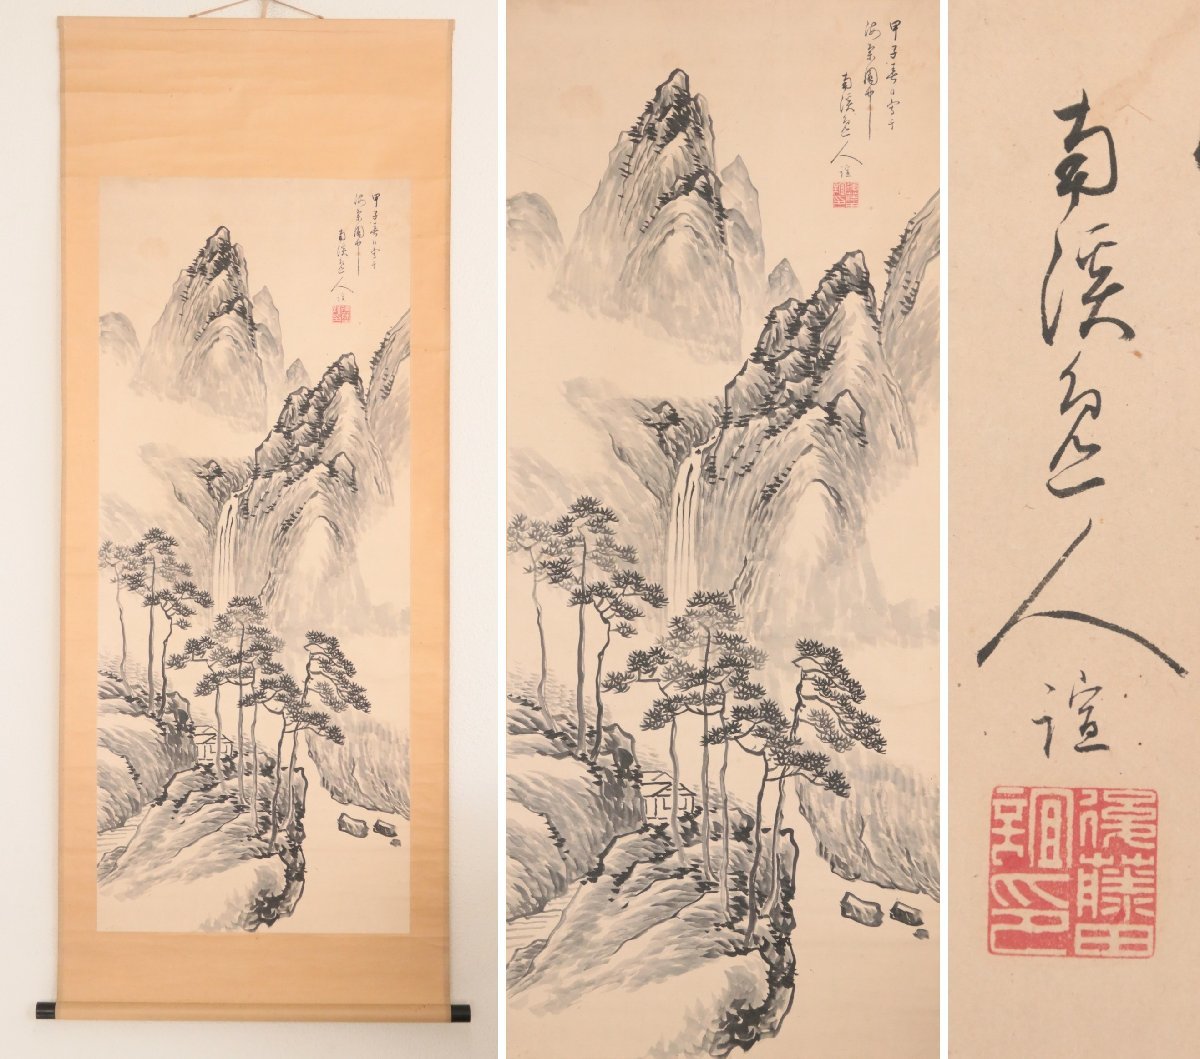 甲子春日写于
園中
南溪逸人
誼
甲子春日写于
園中
南溪逸人
誼
南溪逸人
誼
後藤田
誼印